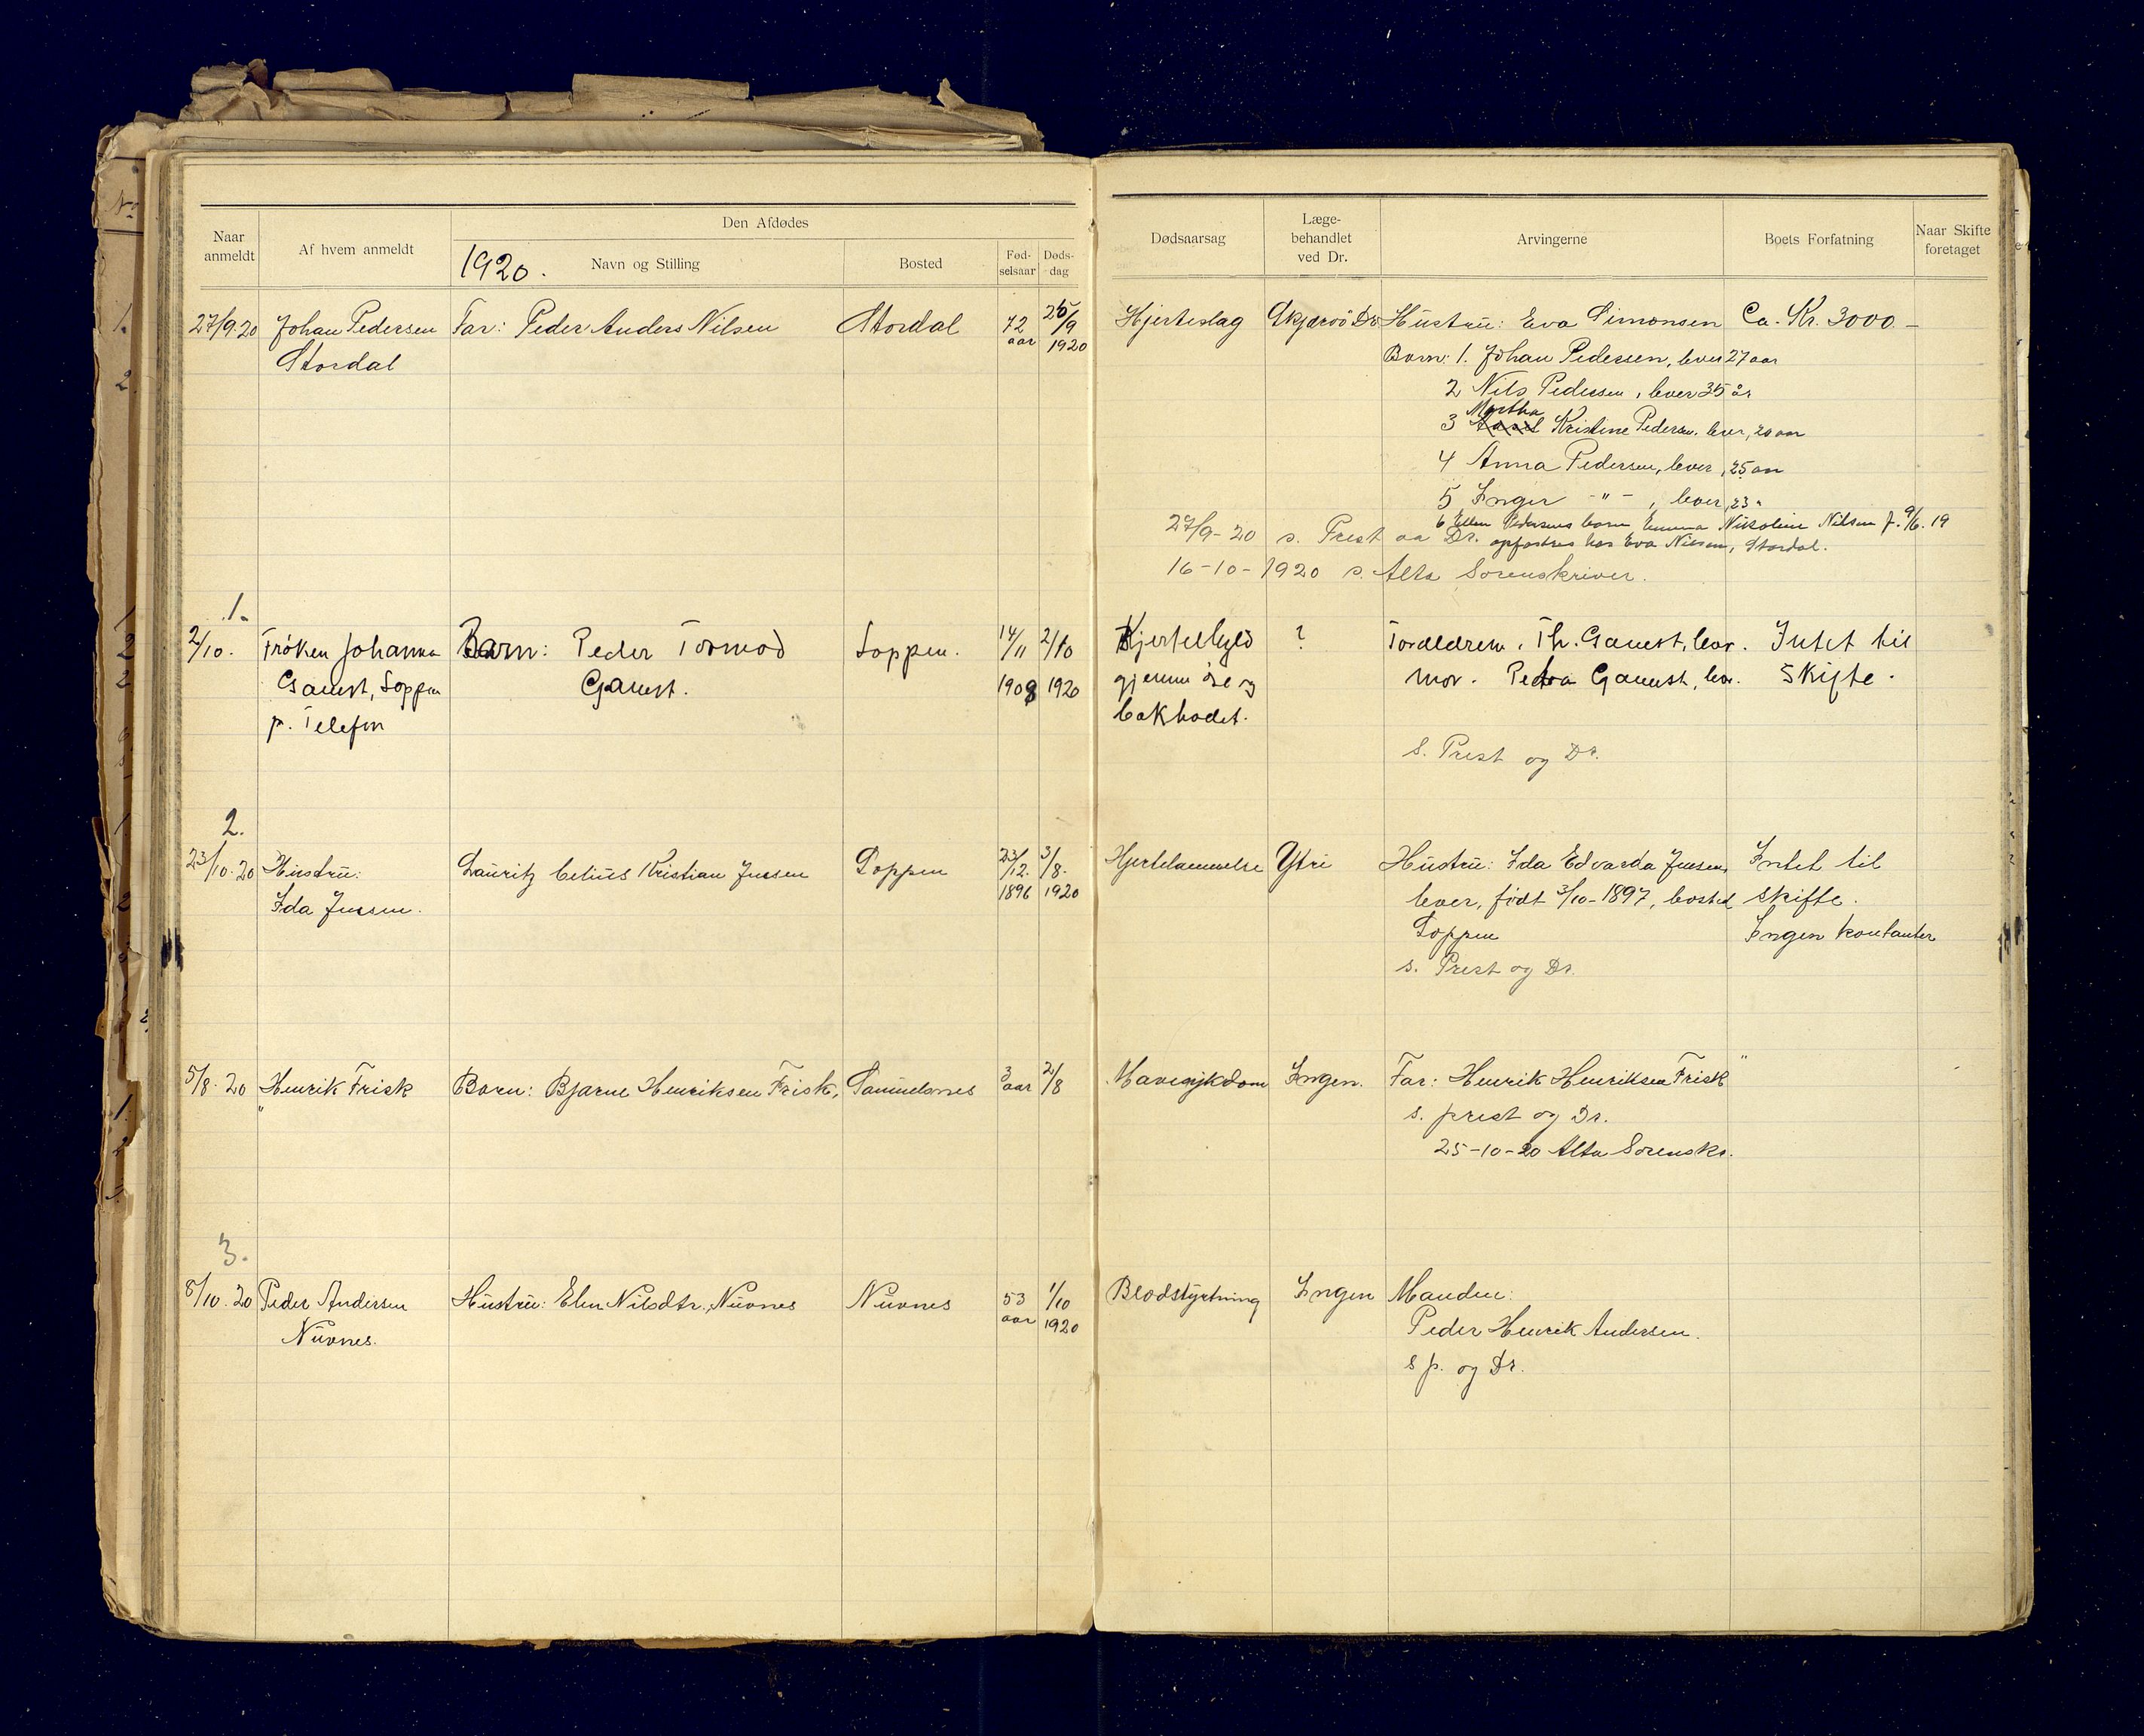 Den Afdødes
Naar anmeldt
Af hvem anmeldt
1920.
Navn og Stilling
Bosted
Fød-selsaar
Døds-dag
Dødsaarsag
Læge-behandlet ved Dr.
Arvingerne
Boets Forfatning
Naar Skifte foretaget
27/9.20 Johan Pedersen Far: Peder Anders Nilsen Stordal 72 26/9 Hjerteslag Hustru: Eva Simonsen Ca. Kr. 3000 –
Stordal aar 1920
Barn: 1. Johan Pedersen, lever 27 aar
2 Nils Pedersen, lever 35 år
Martha
3 Kristine Pedersen. lever, 20 aar
4 Anna Pedersen, lever, 25 aar
5 Inger -"-, lever, 23 "
6 Ellen Pedersens barn Emma Nikoline Nilsen f. 9/6. 19
27/9-20 s. Prest aa Dr. opfostres hos Eva Nilsen, Stordal.
16-10-1920 s. Alta Sorenskriver.
1.
2/10. Frøken Johanna Barn: Peder Tormod Loppen. 14/11 2/10 ? Forældrem. Th. Gamst, lever. Intet til
Gamst, Loppen Gamst. 1908 1920 gjennem øre og mor. Petra Gamst, lev. Skifte.
p. Telefon bakhodet.
s. Prest og Dr.
2.
23/10.20 Hustru: Lauritz Celius Kristian Jensen Loppen 23/12. 3/8. Hjertelammelse Ytri Hustru: Ida Edvarda Jensen, Intet til
Ida Jensen. 1896 1920 lever, født 3/10-1897, bosted skifte.
Loppen Ingen kontanter
s. Prest og Dr.
5/8.20 Henrik Frisk Barn: Bjarne Henriksen Frisk, Samuelsnes 3 aar 2/8 Mavesykdom Ingen. Far: Henrik Henriksen Frisk "
s. prest og Dr.
25-10-20 Alta Sorenskr.
3.
8/10.20 Peder Andersen Hustru: Elen Nilsdtr. Nuvnes Nuvnes 53 1/10 Blodstyrtning Ingen Manden:
Nuvnes. aar 1920 Peder Henrik Andersen.
s p. og Dr.